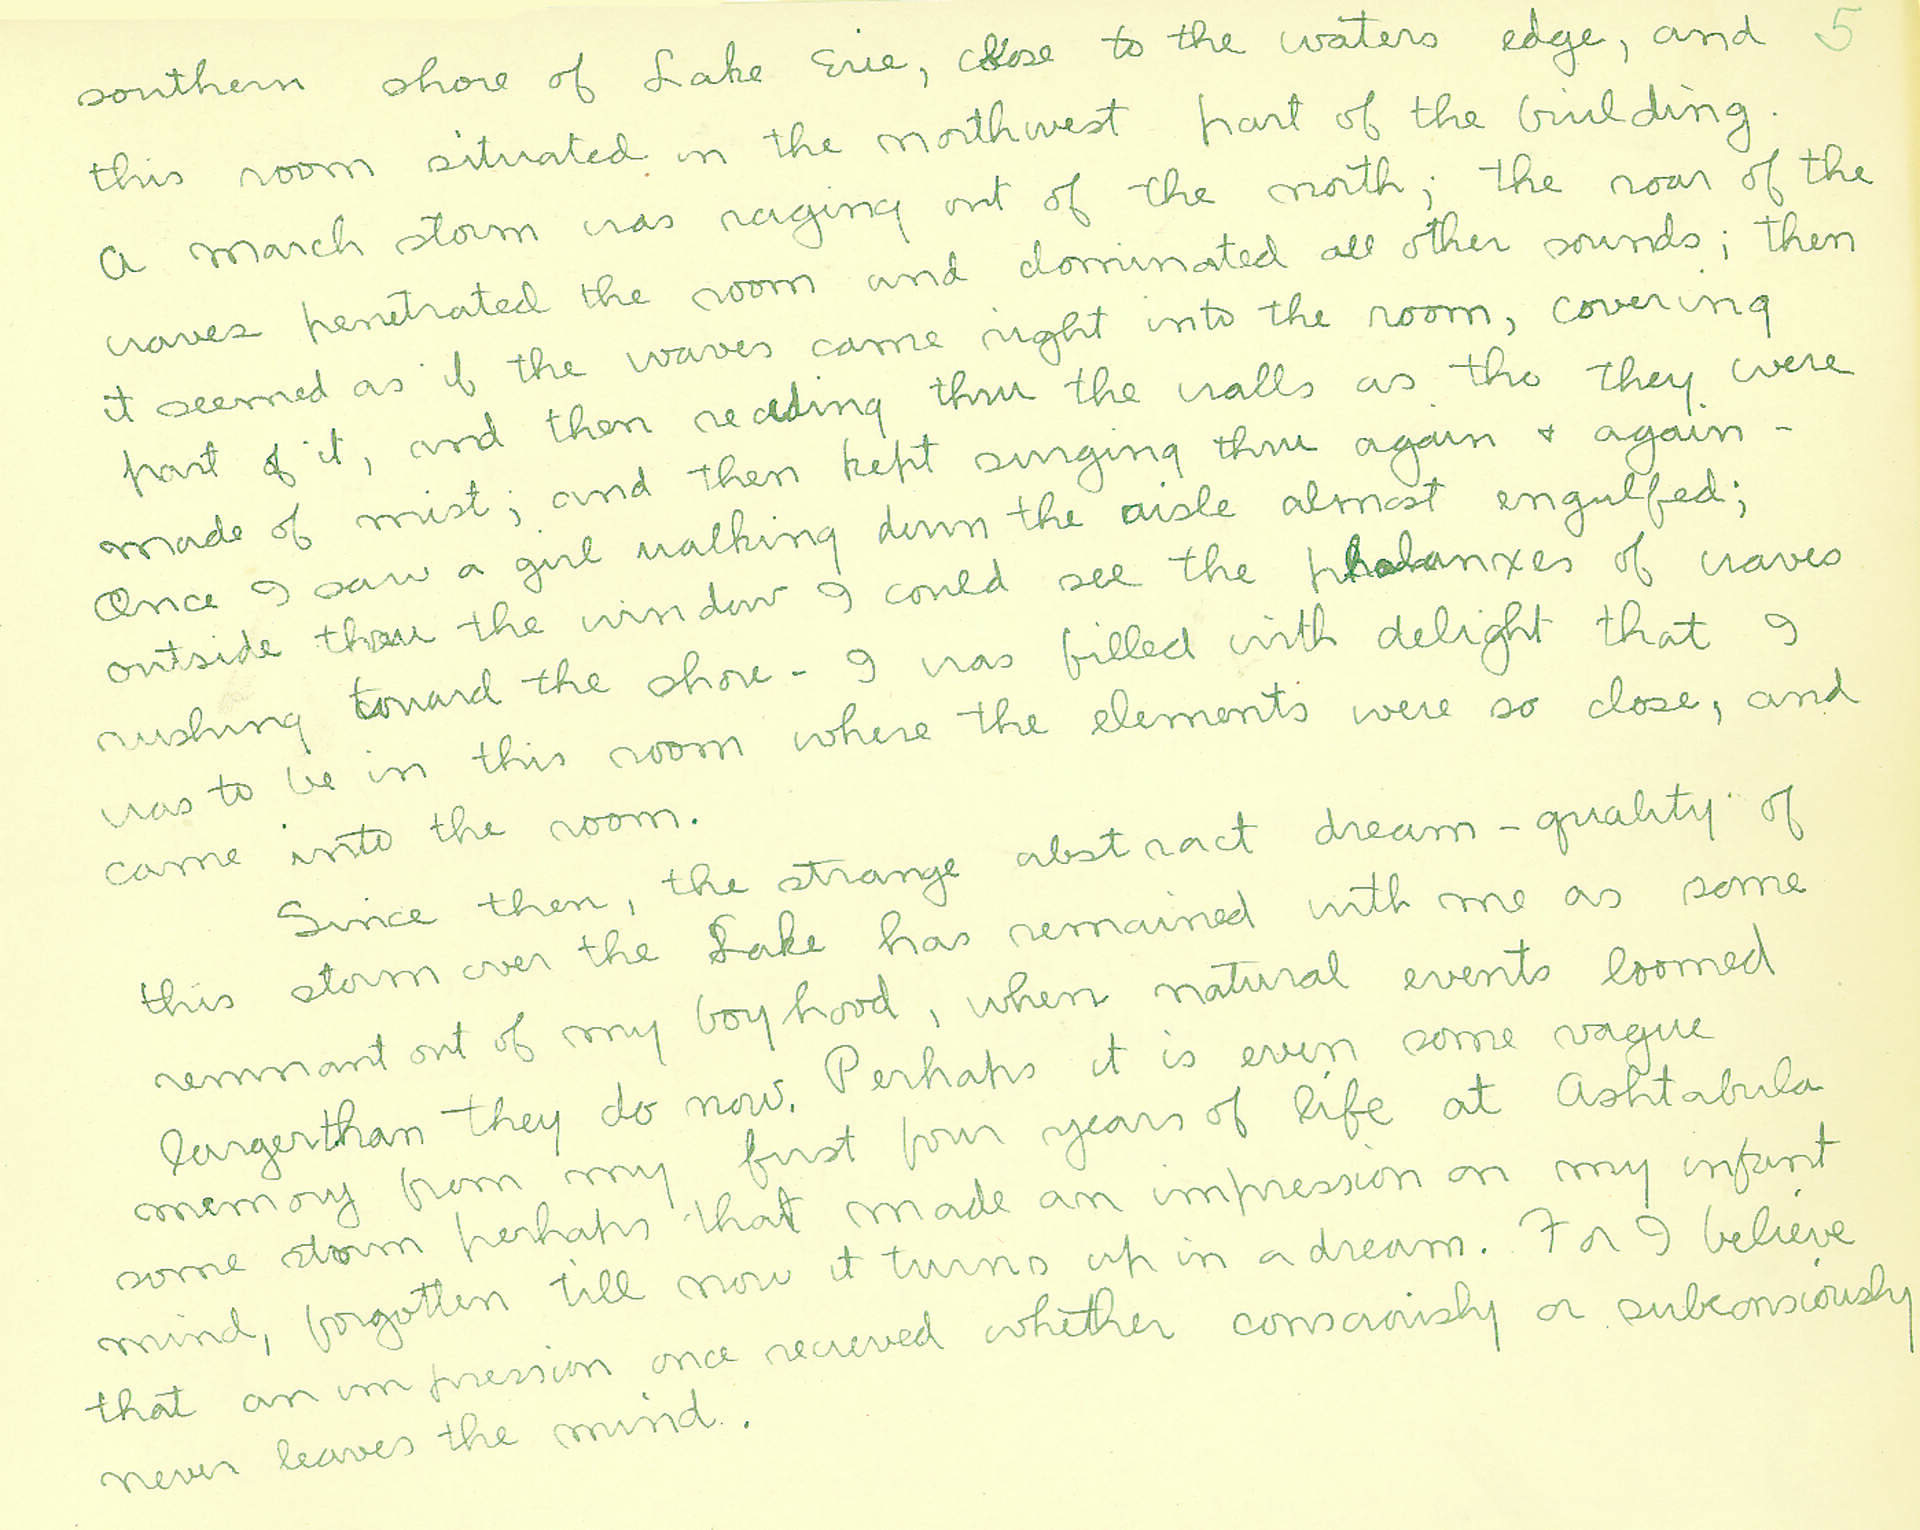 southern shore of Lake Erie, close to the waters edge, and 5
this room situated in the northwest part of the building.
A March storm was raging out of the north; the roar of the
waves penetrated the room and dominated all other sounds; then
it seemed as if the waves came right into the room, covering
part of it, and then receding thru the walls as tho they were
made of mist; and then kept surging thru again + again -
Once I saw a girl walking down the aisle almost engulfed;
outside thru the window I could see the phalanxes of waves
rushing toward the shore - I was filled with delight that I
was to be in this room where the elements were so close, and
came into the room.
Since then, the strange abstract dream-quality of
this storm over the Lake has remained with me as some
remnant out of my boyhood, when natural events loomed
larger than they do now. Perhaps it is even some vague
memory from my first four years of life at Ashtabula
some storm perhaps that made an impression on my infant
mind, forgotten till now it turns up in a dream. For I believe
that an impression once recieved whether consciously or subconsiously
never leaves the mind.